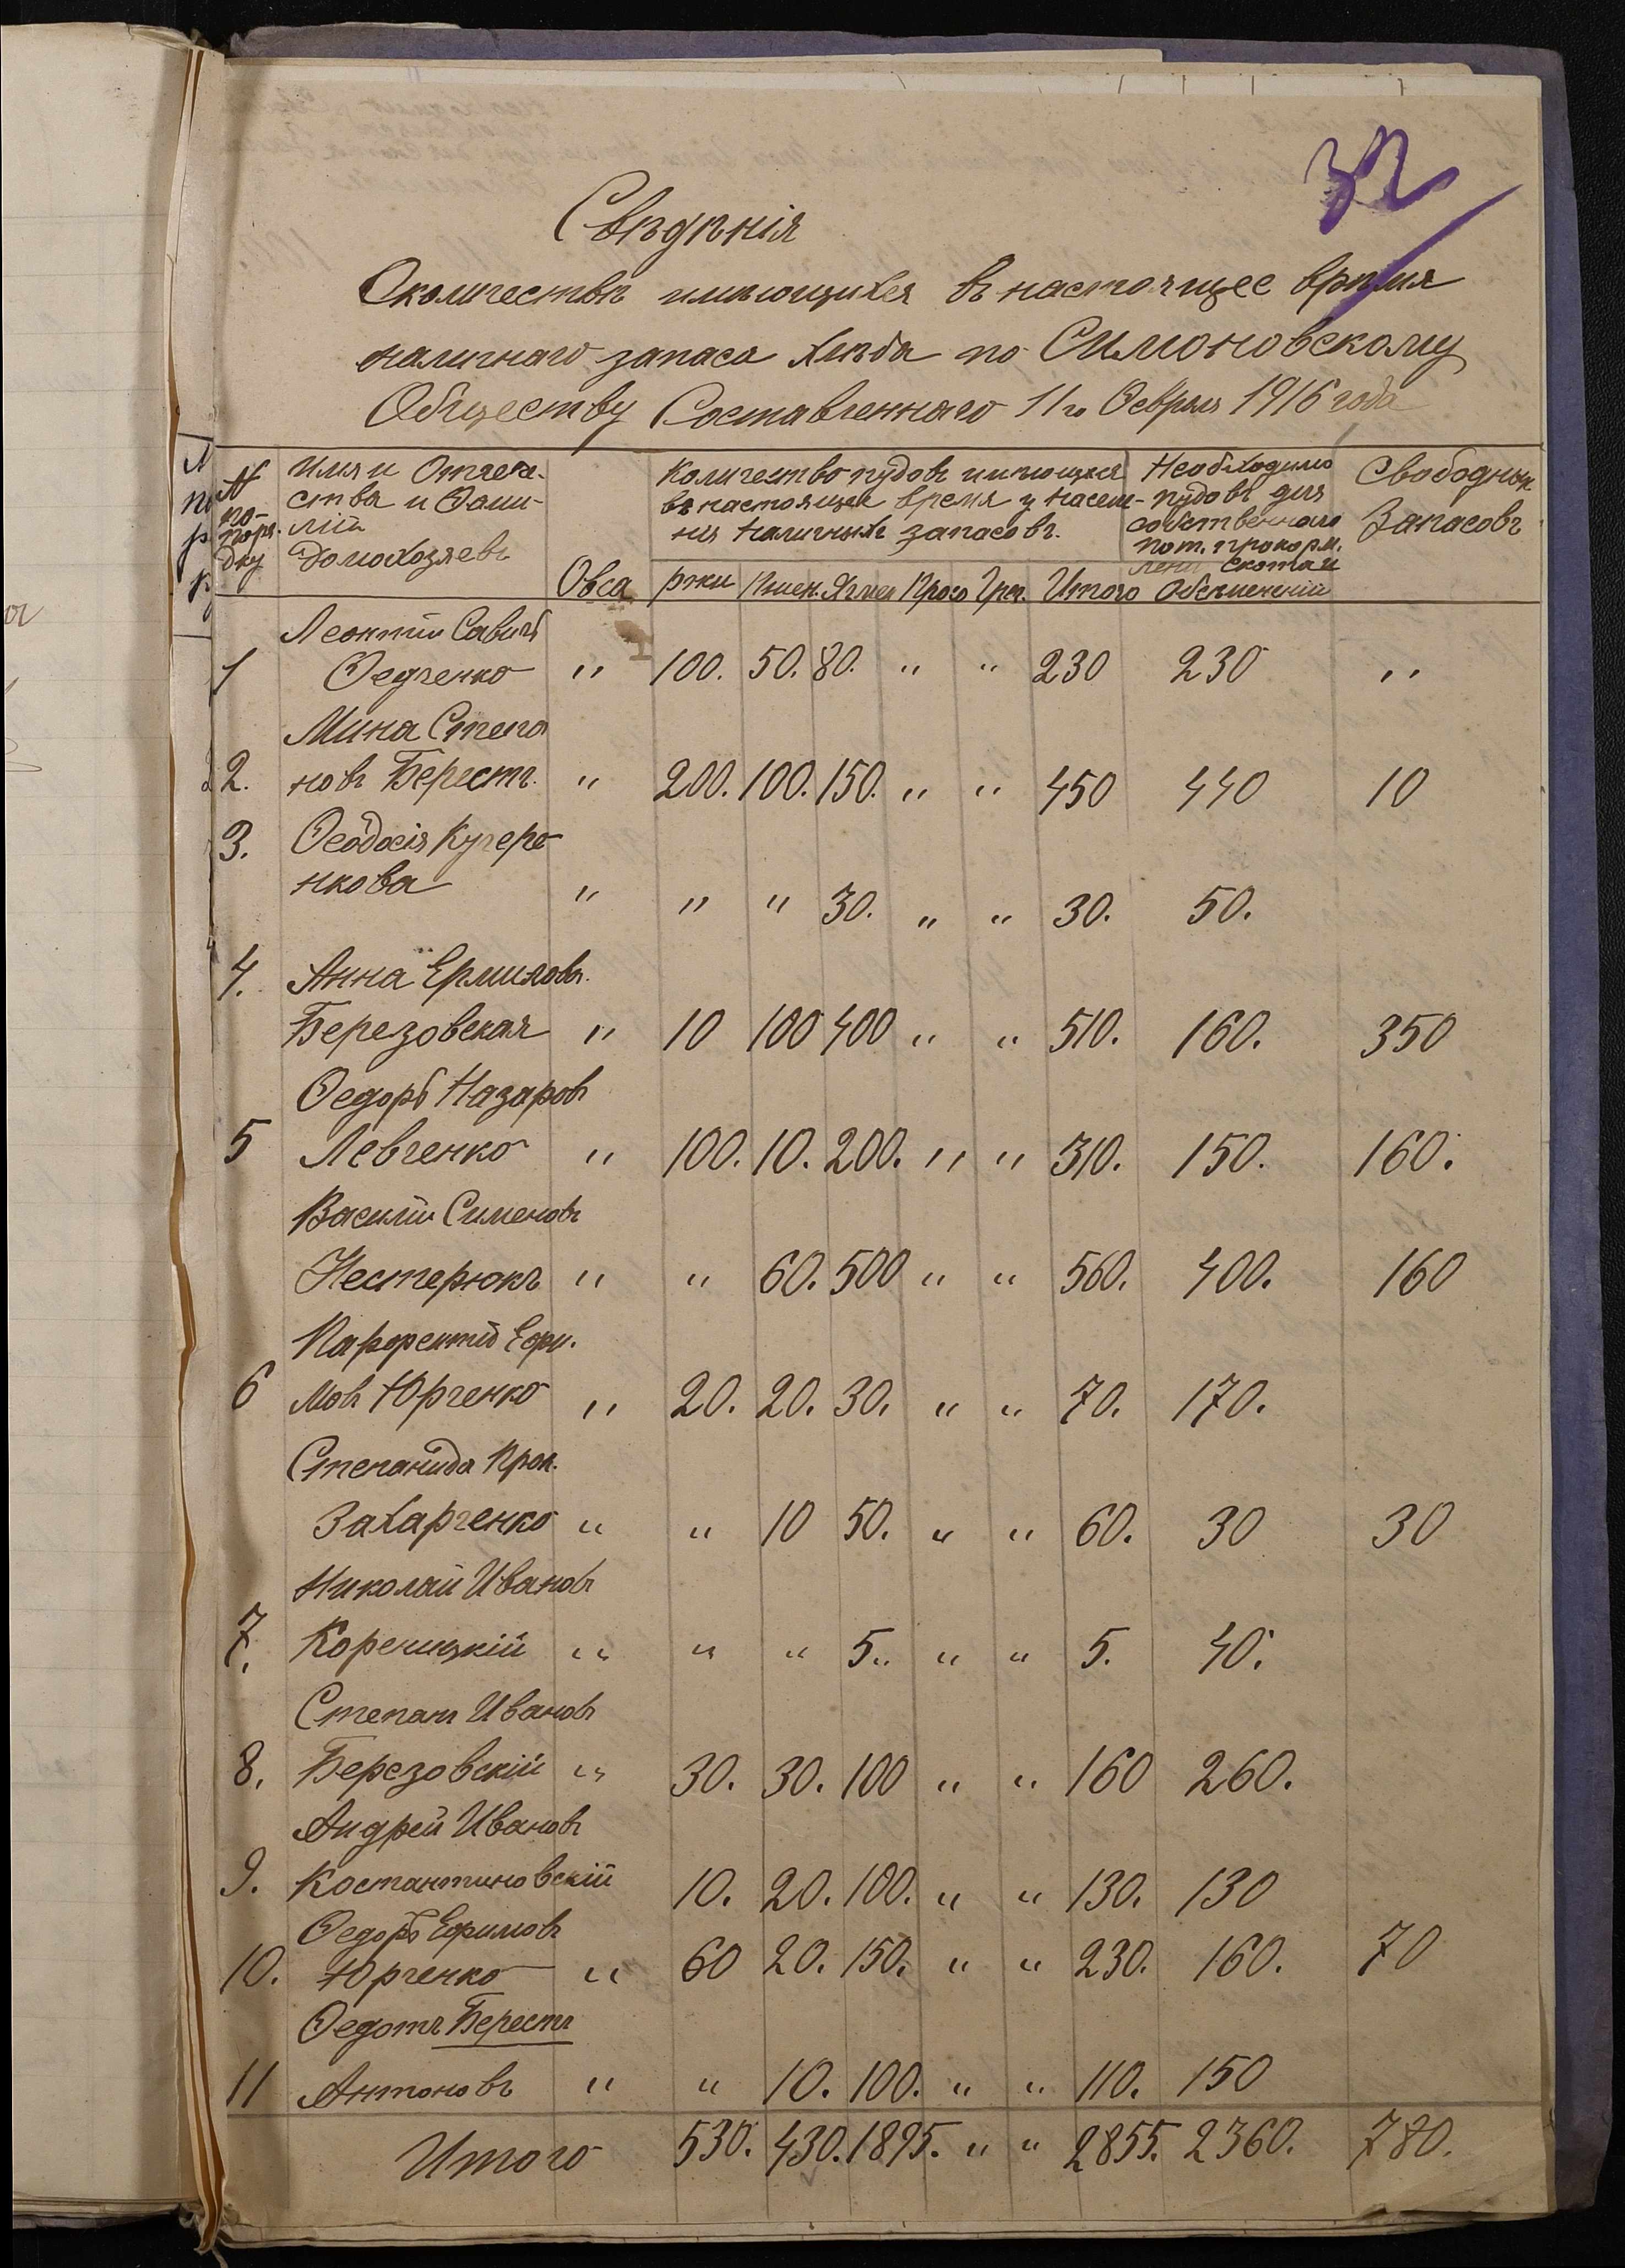 32
Свѣдѣнія
О количествѣ имѣющихся въ настоящее время
наличнаго запаса хлѣба по Симоновскому
Обществу Составленнаго 11го Февраля 1916 года
№ по-поря-дку Имя и Отече-ства и Фами-лій Домохозяевъ Овса Количество пудовъ имѣющихся въ настоящее время у населе-нія наличныхъ запасовъ. Необходимо пудовъ для собственнаго пот. прокорм. лени скота и Обсемененій Свободных Запасовъ
ржи Пшен. Ячмен Просо Греч. Итого
Леонтій Савичъ
1 Федченко " 100. 50. 80. " " 230 230 "
Мина Степа
2. новъ Берестъ. " 200. 100. 150. " " 450 440 10
3. Феодосія Кучере-
нкова " " " 30. " " 30. 50.
4. Анна Ермилова.
Березовская " 10 100 400 " " 510. 160. 350
Федоръ Назаровъ
5 Левченко " 100. 10. 200. " " 310. 150. 160.
Василій Сименовъ
Нестерюкъ " " 60. 500 " " 560. 400. 160
Парфентій Ефи.
6 мовъ Юрченко " 20. 20. 30. " " 70. 170.
Степанида Прок.
Захарченко " " 10 50. " " 60. 30 30
Николай Ивановъ
7. Кореницкій " " " 5. " " 5. 40.
Степанъ Ивановъ
8. Березовскій " 30. 30. 100 " " 160 260.
Андрей Ивановъ
9. Костантиновскій 10. 20. 100. " " 130. 130
Федоръ Ефимовъ
10. Юрченко " 60 20. 150. " " 230. 160. 70
Федотъ Берестъ
11 Антоновъ " " 10. 100. " " 110. 150
Итого 530. 430. 1895. " " 2855. 2360. 780.